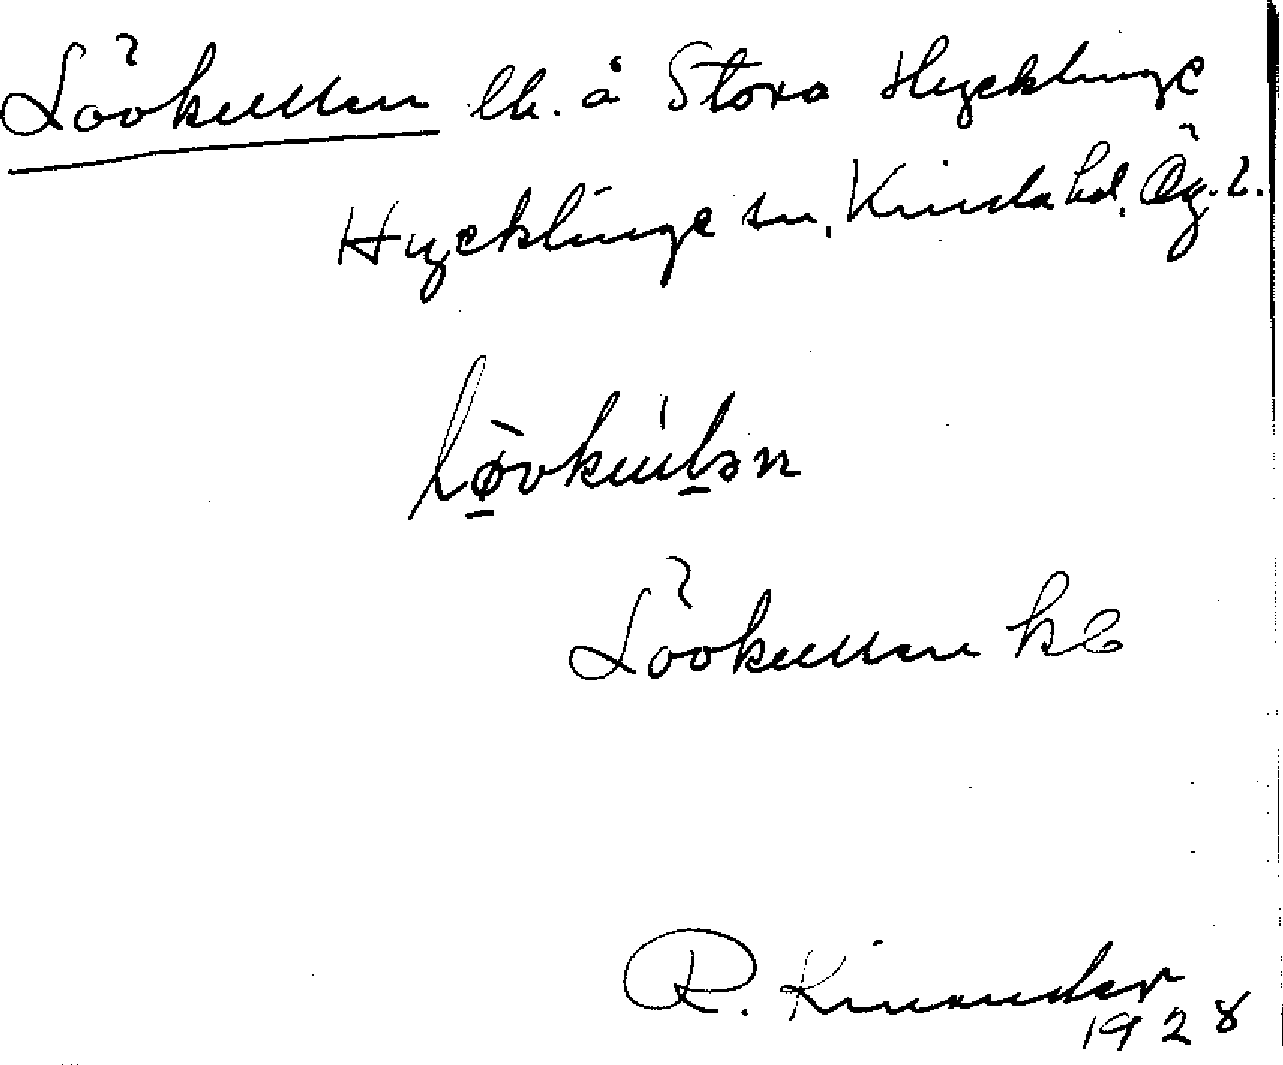 Lövkullen lh. å Stora Hycklinge
Hycklinge sn, Kinda hd, Ög. l.
lø̀vkúlən
Lövkullen kE
R. Kinander
1928